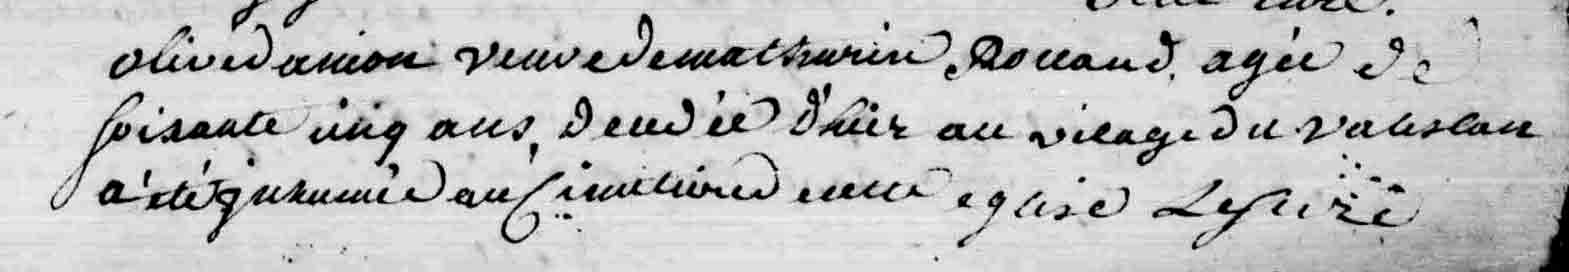 olive danion veuve de mathurin Rouaud, agée de
soixante cinq ans, decedée d'hier au vilage du
a été inhumée au cimetiere de cette eglise